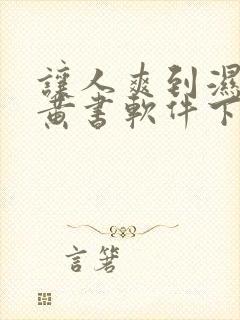 讓人爽到濕
黃書軟件下
言箬